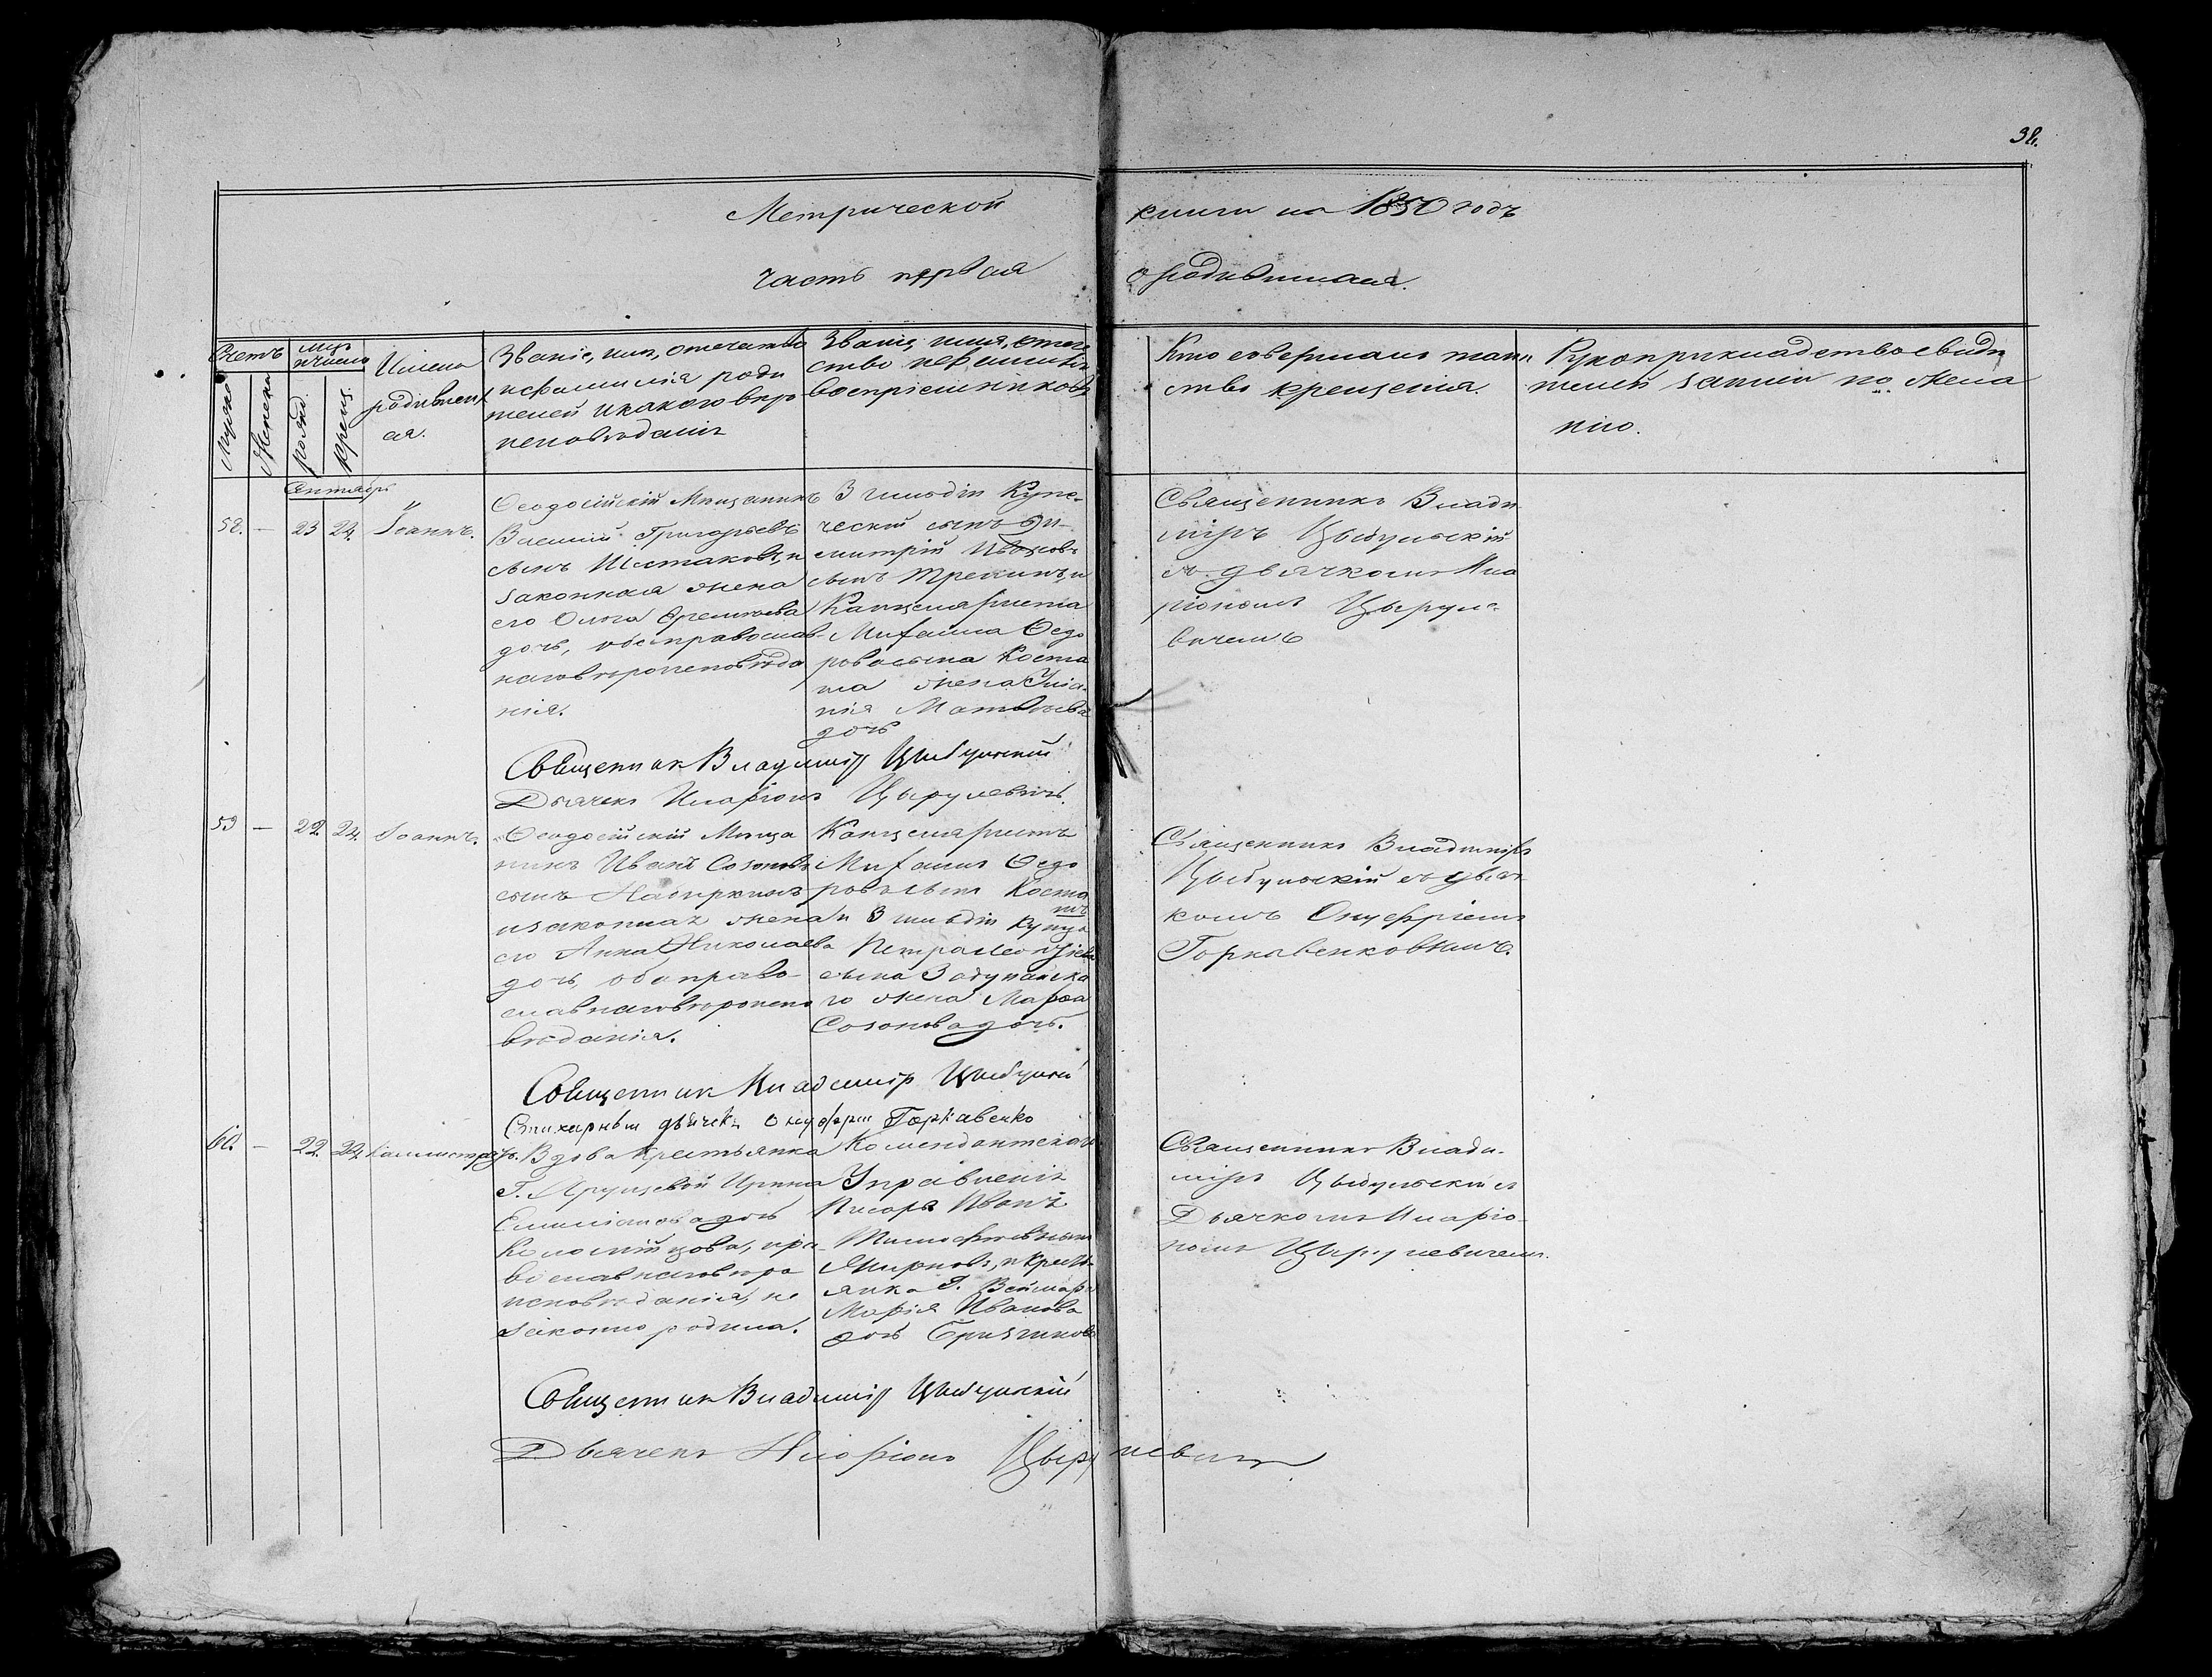 38.
Метрической книги на 1850 годъ
часть первая о родившихся.
Счетъ
Мужеска
Женска
мцъ и число
рожд.
крещ.
Имена
родивших
ся.
Званіе, имя, отечество
и фамилія роди
телей и какого вѣро
исповѣданія
Званіе, имя, отече
ство и фамилія
воспріемниковъ
Кто совершалъ таин
ство крещенія.
Рукоприкладство свидѣ
телей записи по жела
нію.
Сентябрь
58. — 23 24. Іоаннъ.
Ѳеодосійскій Мѣщанинъ
Василій Григорьевъ
сынъ Шестаковъ, и
законная жена
его Ольга Еремѣева
дочь, оба православ-
наго вѣроисповѣда
нія.
3 гильдіи Купе-
ческій сынъ Ди-
митрій Ивановъ
сынъ Трепинъ, и
Канцеляриста
Михаила Ѳедо
рова сына Коста
ша жена Уліа-
нія Матвѣева
дочь
Священникъ Влади
міръ Цыбульскій
съ дьячкомъ Ила
ріономъ Цыруле-
вичемъ
Священник Владимір Цыбульский
Дьячекъ Иларіонъ Цырулевичъ.
59 — 22 24. Іоаннъ.
Ѳеодосійскій Мѣща
нинъ Иванъ Созоновъ
сынъ Набиркинъ
и законная жена
его Анна Николаева
дочь, оба право-
славнаго вѣроиспо
вѣданія.
Канцеляристъ
Михаилъ Ѳедо
ровъ сынъ Коста
шъ
и 3 гильдіи Купца
Петра Георгіева
сына Задунайска
го жена Марѳа
Созонова дочь.
Священникъ Владиміръ
Цыбульскій съ дьяч
комъ Онуфріемъ
Горкавенковымъ.
Священник Владимір Цыбульский
Стихарный дьячекъ Онуфрій Горкавенко
60. — 22. 24. Каллистратъ.
Вдова крестьянка
Г. Ярунцевой Ирина
Емиліанова дочь
Коломійцова, пра-
вославнаго вѣро
исповѣданія, не
законно родила.
Комендантскаго
Управленія
Писарь Иванъ
Тимофѣевъ сынъ
Жирновъ, и крестъ-
янка Г. Веймаръ
Марія Иванова
дочь Бризгинова
Священникъ Влади-
міръ Цыбульскій съ
Дьячкомъ Иларіо-
номъ Цырулевичемъ.
Священник Владимір Цыбульский
Дьячекъ Иларіонъ Цырулевичъ